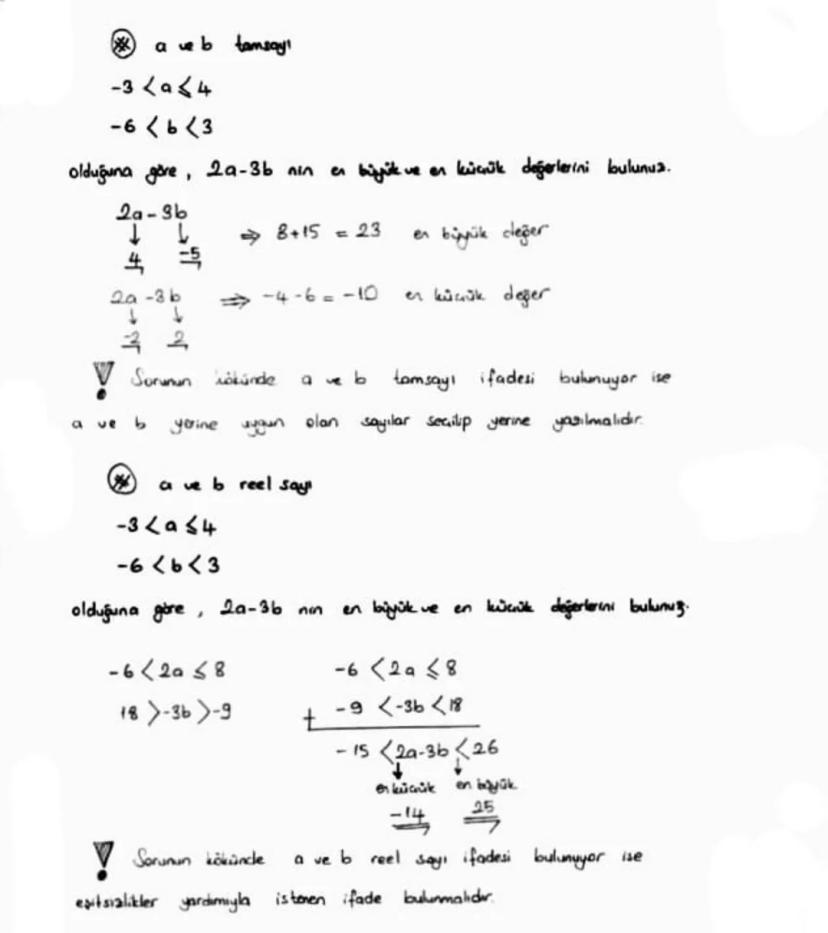 ※ a ve b tamsayı
-3 < a ≤ 4
-6 < b < 3
olduğuna göre, 2a-3b nın en büyük ve en küçük değerlerini bulunuz.
2a - 3b
↓ ↓ ⇒ 8+15 = 23 en büyük değer
4 -5
2a - 3b ⇒ -4-6 = -10 en küçük değer
↓ ↓
-2 2
! Sorunun kökünde a ve b tamsayı ifadesi bulunuyor ise
a ve b yerine uygun olan sayılar seçilip yerine yazılmalıdır.
※ a ve b reel sayı
-3 < a ≤ 4
-6 < b < 3
olduğuna göre, 2a-3b nın en büyük ve en küçük değerlerini bulunuz.
-6 < 2a ≤ 8 -6 < 2a ≤ 8
18 > -3b > -9 + -9 < -3b < 18
-15 < 2a-3b < 26
↓ ↓
en küçük en büyük
-14 25
! Sorunun kökünde a ve b reel sayı ifadesi bulunuyor ise
eşitsizlikler yardımıyla istenen ifade bulunmalıdır.